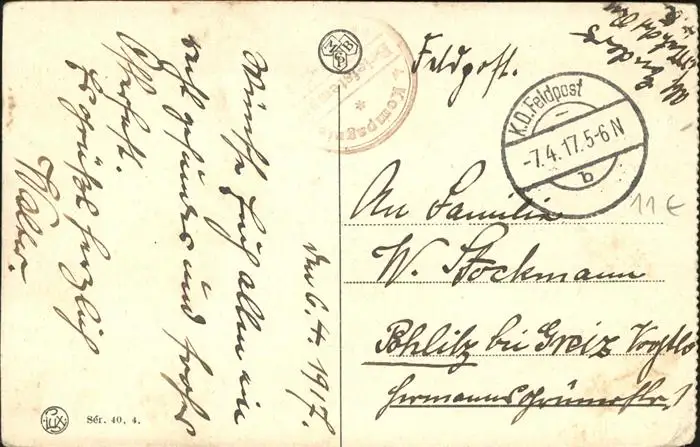 den 6.4.1917.
Wünsche Euch allen ein
recht gesundes und frohes
Osterfest.
Es grüßt herzlich
Walter.
MSBP
Feldpost.
Kompagnie
K.D. Feldpost
-7.4.17.5-6 N
b
11€
An Familie
W. Stockmann
Pohlitz bei Greiz Vogtl
Hermannsgrünerstr. 1
LUX
Sér. 40, 4.